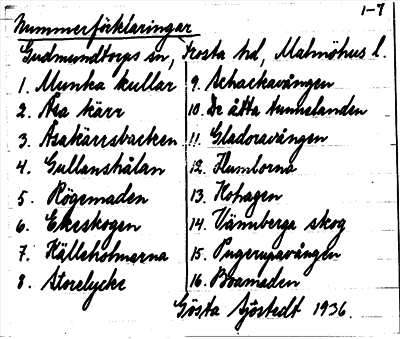 1-7
Nummerförklaringar
Gudmundtorps sn, Frosta hd, Malmöhus l.
1. Munka kullar
2. Åsa kärr
3. Åsakärrsbacken
4. Gullanshålan
5. Rögemaden
6. Ekeskogen
7. Källeholmarna
8. Storelycke
9. Schackavången
10. De åtta tunnelanden
11. Gladoravången
12. Humlorna
13. Kohagen
14. Vännberga skog
15. Pugerupavången
16. Boamaden
Gösta Sjöstedt 1936.